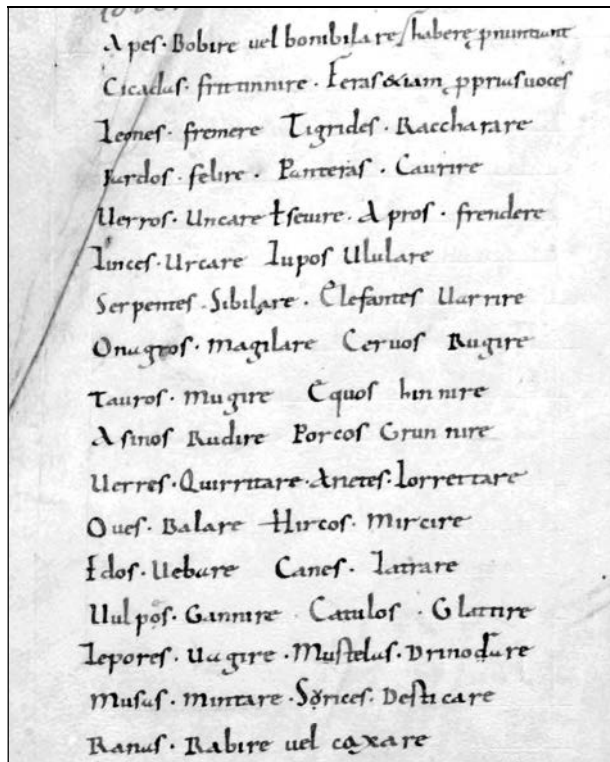 Apes · Bobire uel bombilare / haberę pnuntiant
Cicadas · fritinnire · Feras &iam ppriasuoces
Leones · fremere Tigrides · Raccharare
Pardos · felire · Panteras · Caurire
Uerros · Uncare ł seuire · Apros · frendere
Linces · Urcare Lupos Ululare
Serpentes · Sibilare · Elefantes Uarrire
Onagros · magilare Ceruos Rugire
Tauros · mugire Equos hinnire
Asinos Rudire Porcos Grunnire
Uerres · Quirritare · Arietes · Lorrettare
Oues · Balare Hircos · mircire
Edos · Uebare Canes · Latrare
Uulpos · Gannire Catulos · Glattire
Lepores · Uagire · Mustelas · Drinodare
Musas · mintare · Sorices · Desticare
Ranas · Rabire uel coaxare